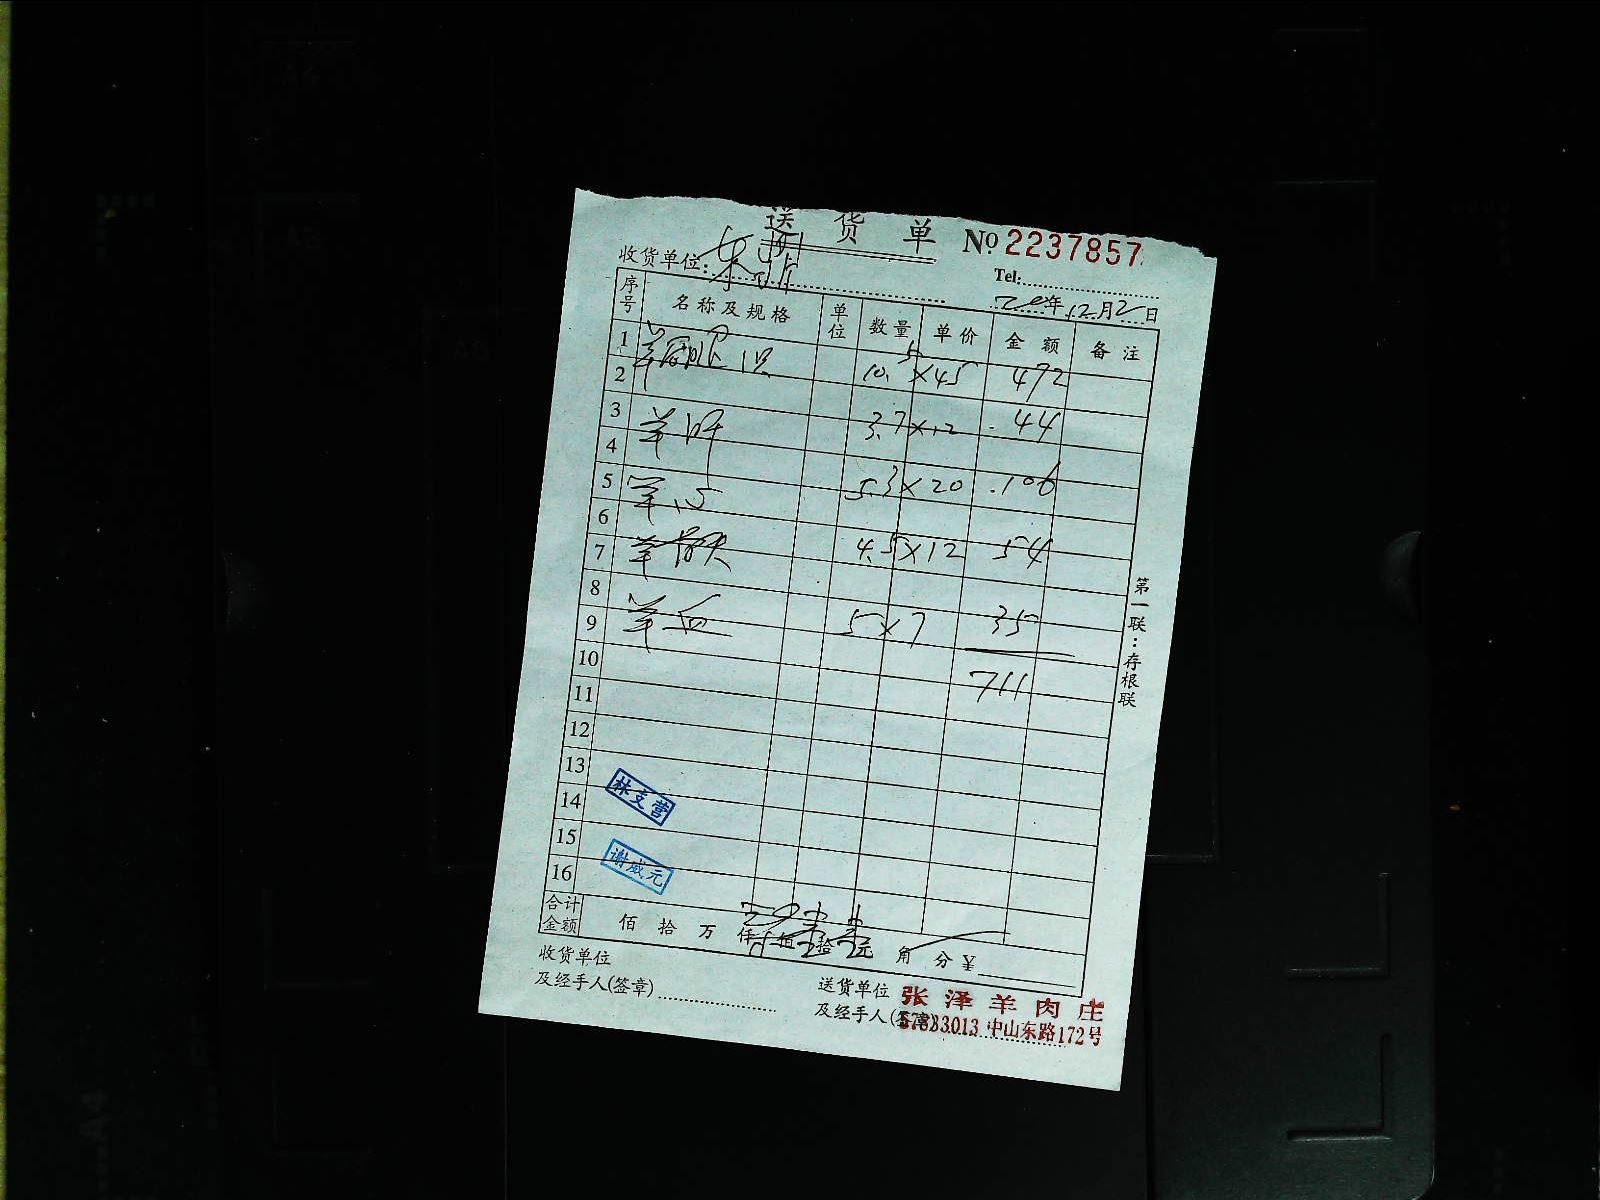 送货单 № 2237857
收货单位:
Tel:
20年12月2日
序号 名称及规格 单位 数量 单价 金额 备注
1 羊后腿1只 10.5×45 472
2
3 羊肝 3.7×12 44
4
5 羊心 5.3×20 106
6
7 羊骨头 4.5×12 54
8
9 羊血 5×7 35
10 711
11
12
13
14 林支营
15
16 谢威元
合计金额 佰 拾 万 仟 柒佰壹拾壹元 角 分 ¥
收货单位
及经手人(签章)
送货单位 张泽羊肉庄
及经手人(签章) 57833013 中山东路172号
第一联:存根联